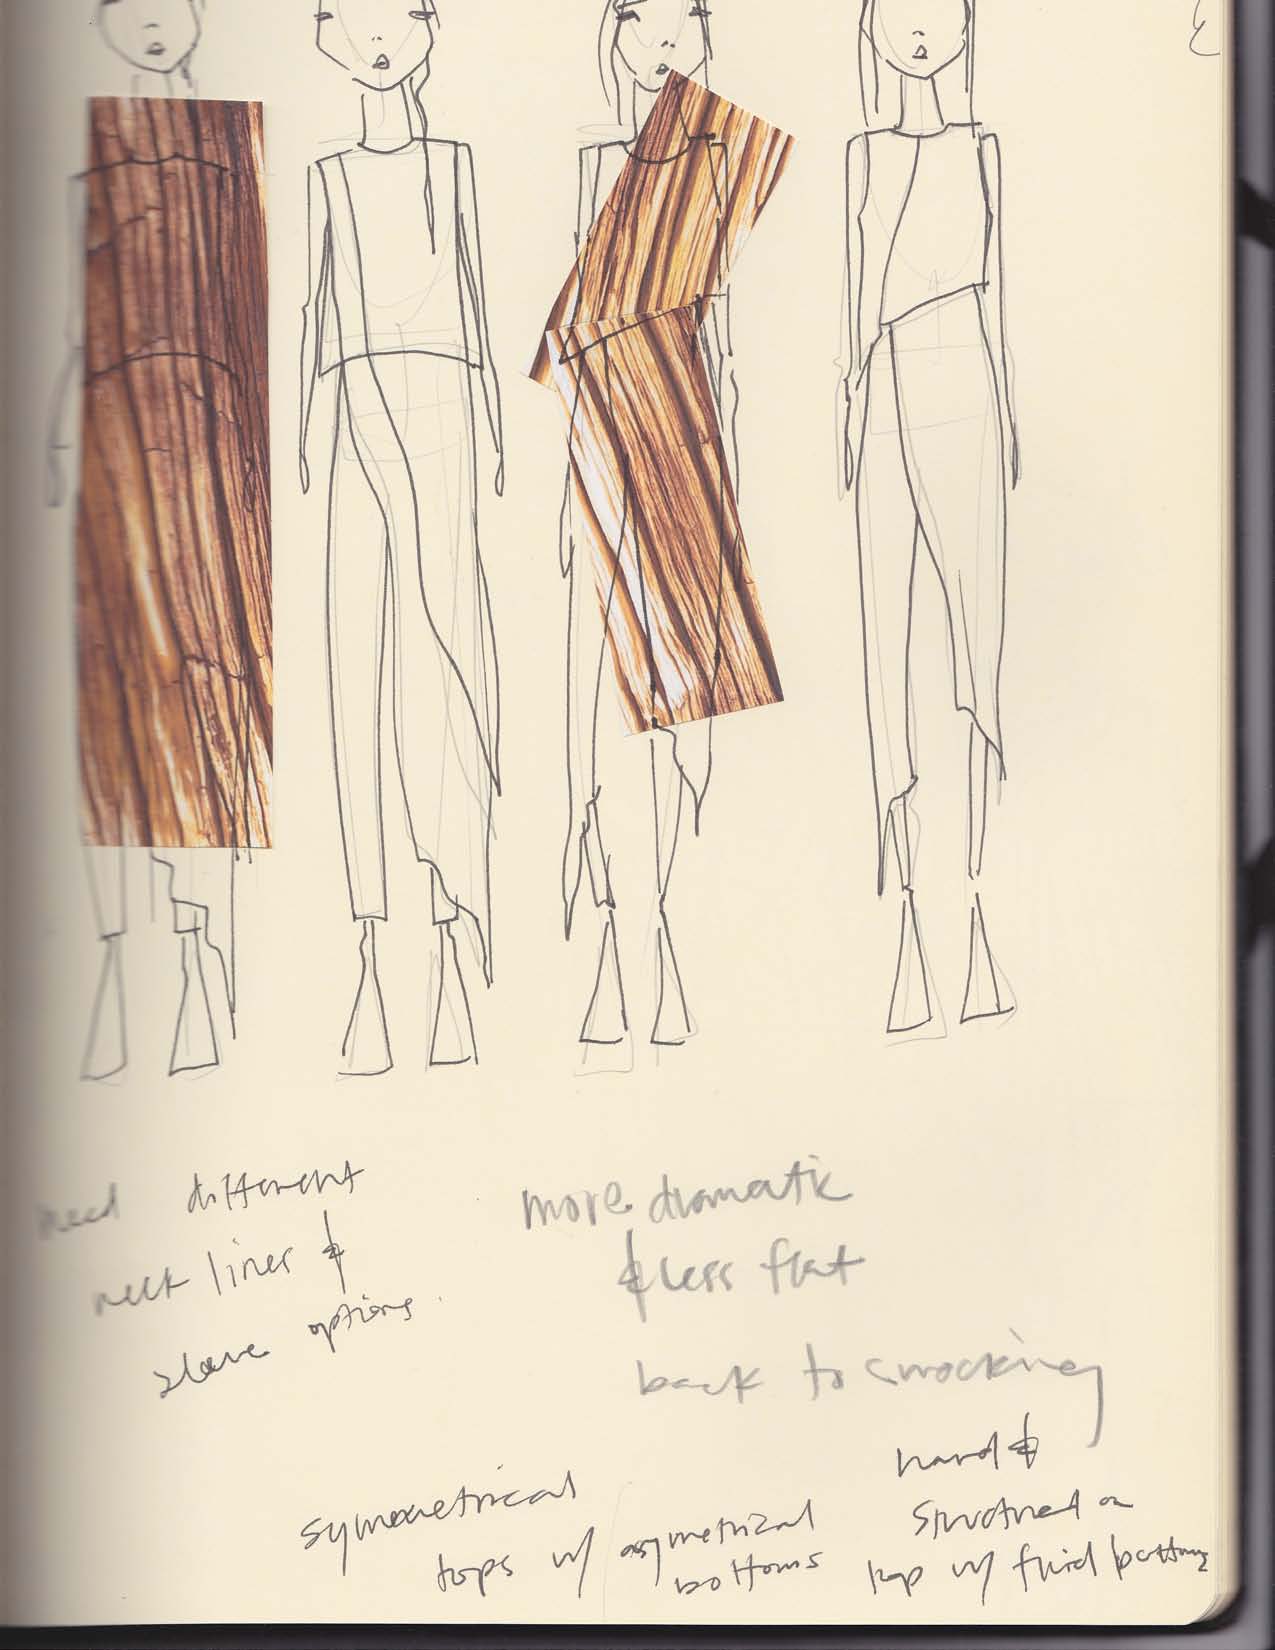 need different
neck lines &
sleeve options.
more dramatic
& less flat
back to smocking
symmetrical
tops w/ asymetrical
bottoms
hard &
structured on
top w/ fluid bottoms